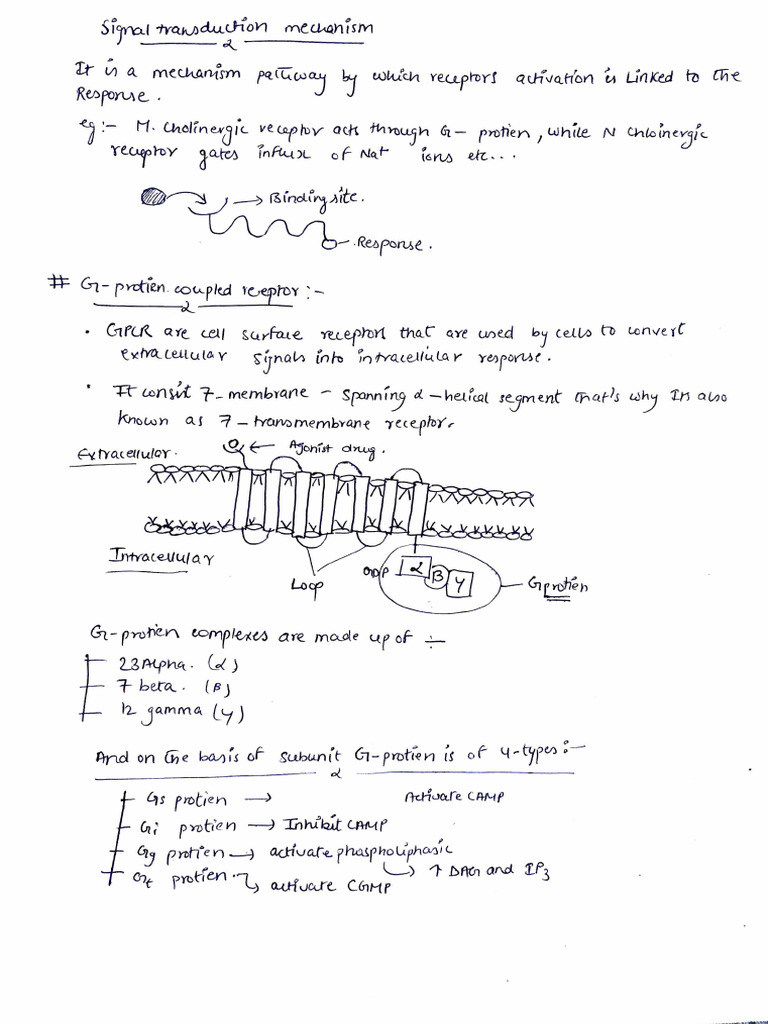 Signal transduction mechanism
It is a mechanism pathway by which receptors activation is Linked to the
Response.
eg:- M. Cholinergic receptor acts through G- protien, while N Chloinergic
receptor gates influx of Na+ ions etc...
→ Binding site.
Response.
# G-protien coupled receptor:-
• GPCR are cell surface receptors that are used by cells to convert
extracellular signals into intracellular response.
• It consit 7-membrane - spanning α-helical segment that's why It also
known as 7-transmembrane receptor.
Extracellular.
← Agonist drug.
Intracellular
Loop
GDP α β γ
G protien
G-protien complexes are made up of ÷
23 Alpha. (α)
7 beta. (β)
12 gamma (γ)
And on the basis of subunit G-protien is of 4-types:-
Gs protien → Activate CAMP
Gi protien → Inhibit CAMP
Gq protien → activate phospholiphasic
↑ DAG and IP3
Gt protien. ↳ activate CGMP